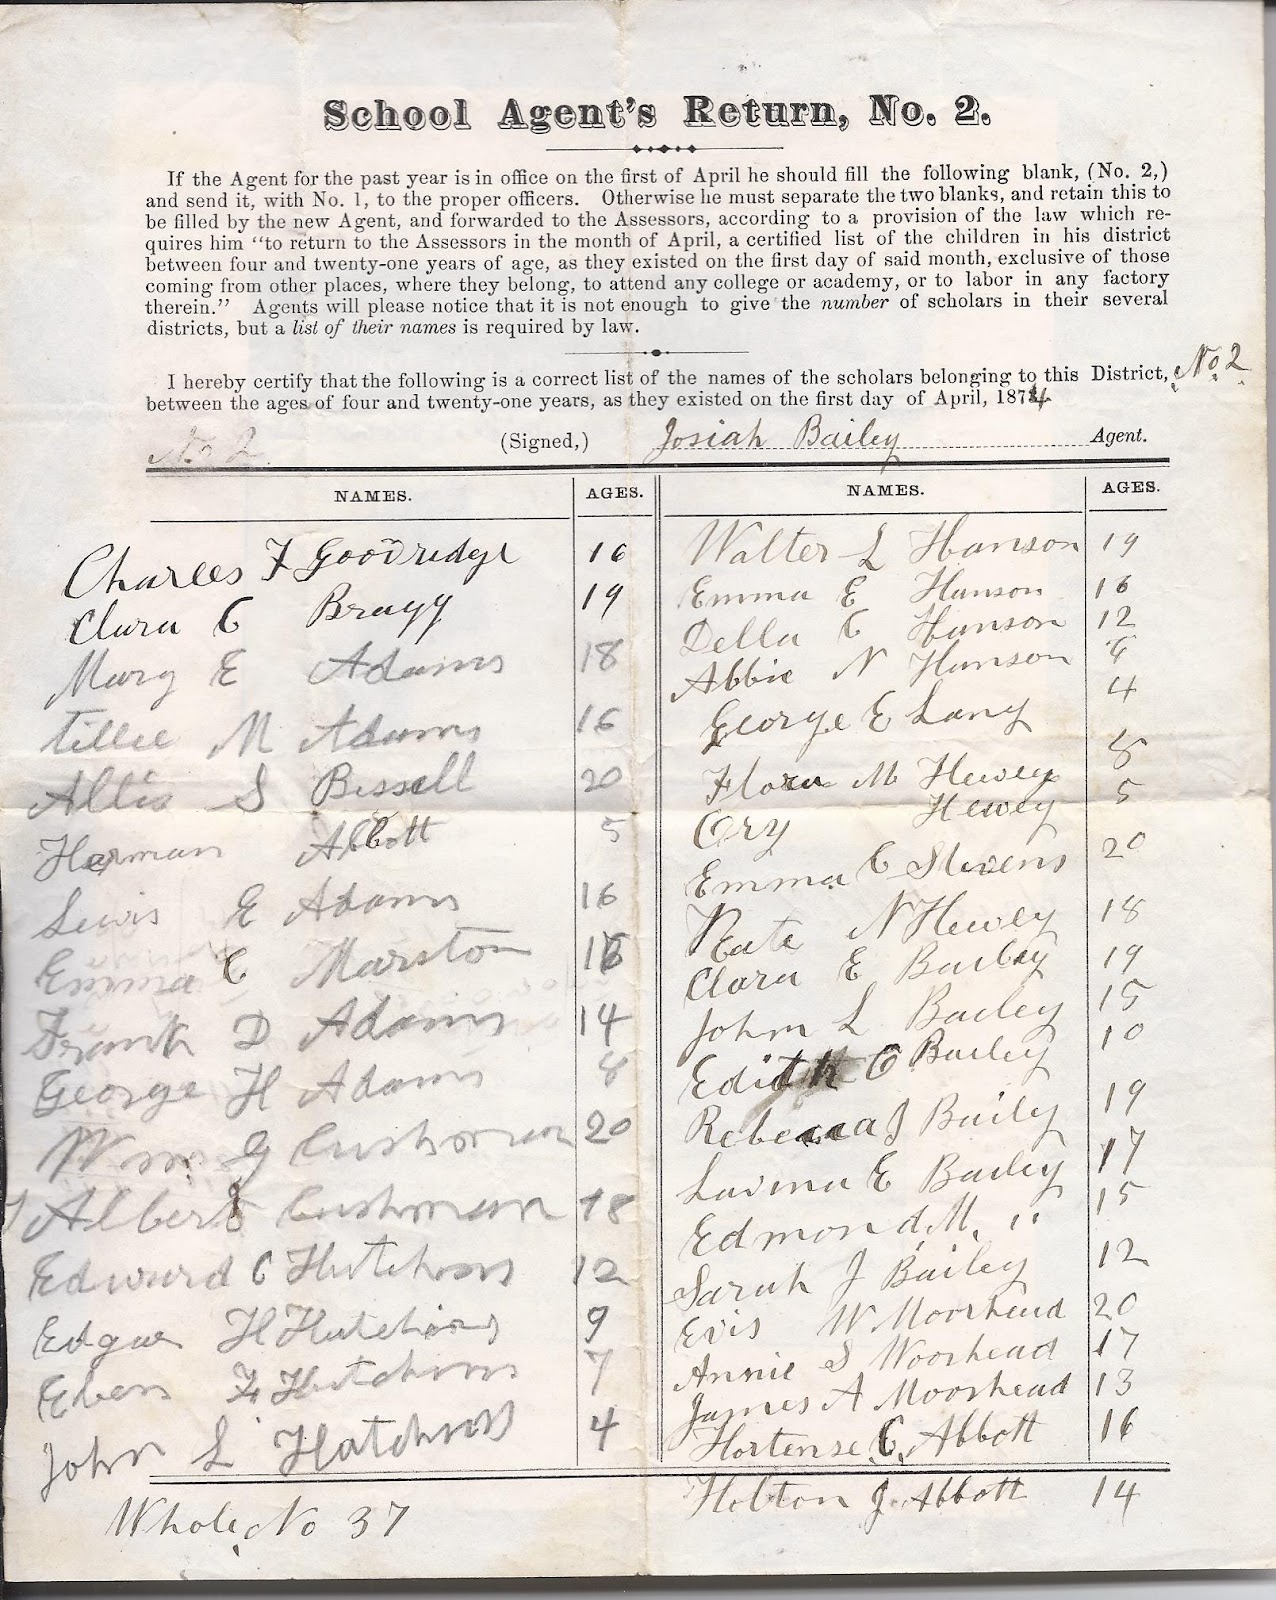 School Agent's Return, No. 2.
If the Agent for the past year is in office on the first of April he should fill the following blank, (No. 2,)
and send it, with No. 1, to the proper officers. Otherwise he must separate the two blanks, and retain this to
be filled by the new Agent, and forwarded to the Assessors, according to a provision of the law which re-
quires him "to return to the Assessors in the month of April, a certified list of the children in his district
between four and twenty-one years of age, as they existed on the first day of said month, exclusive of those
coming from other places, where they belong, to attend any college or academy, or to labor in any factory
therein." Agents will please notice that it is not enough to give the number of scholars in their several
districts, but a list of their names is required by law.
I hereby certify that the following is a correct list of the names of the scholars belonging to this District, No. 2
between the ages of four and twenty-one years, as they existed on the first day of April, 1874
No 2 (Signed,) Josiah Bailey Agent.
NAMES. AGES.
Charles F Goodridge 16
Clara C Bragg 19
Mary E Adams 18
Tillie M Adams 16
Altis S Bissell 20
Herman Abbott 5
Lewis E Adams 16
Emma C Marston
Frank D Adams 14
George H Adams 8
Wm G Cushman 20
Albert Cushman 18
Edward C Hutchins 12
Edgar H Hutchins 9
Eben F Hutchins 7
John L Hutchins 4
Whole No 37
NAMES. AGES.
Walter L Hanson 19
Emma E Hanson 16
Della C Hanson 12
Abbie N Hanson
George E Lang 4
Flora M Hewey 8
Ory Hewey 5
Emma C Stevens 20
Kate N Hewey 18
Clara E Bailey 19
John L Bailey 15
Edith C Bailey 10
Rebecca J Baily 19
Lavina E Bailey 17
Edmond M. " 15
Sarah J Bailey 12
Evis W Moorhead 20
Annie S Moorhead 17
James A Moorhead 13
Hortense C. Abbott 16
Holton J. Abbott 14